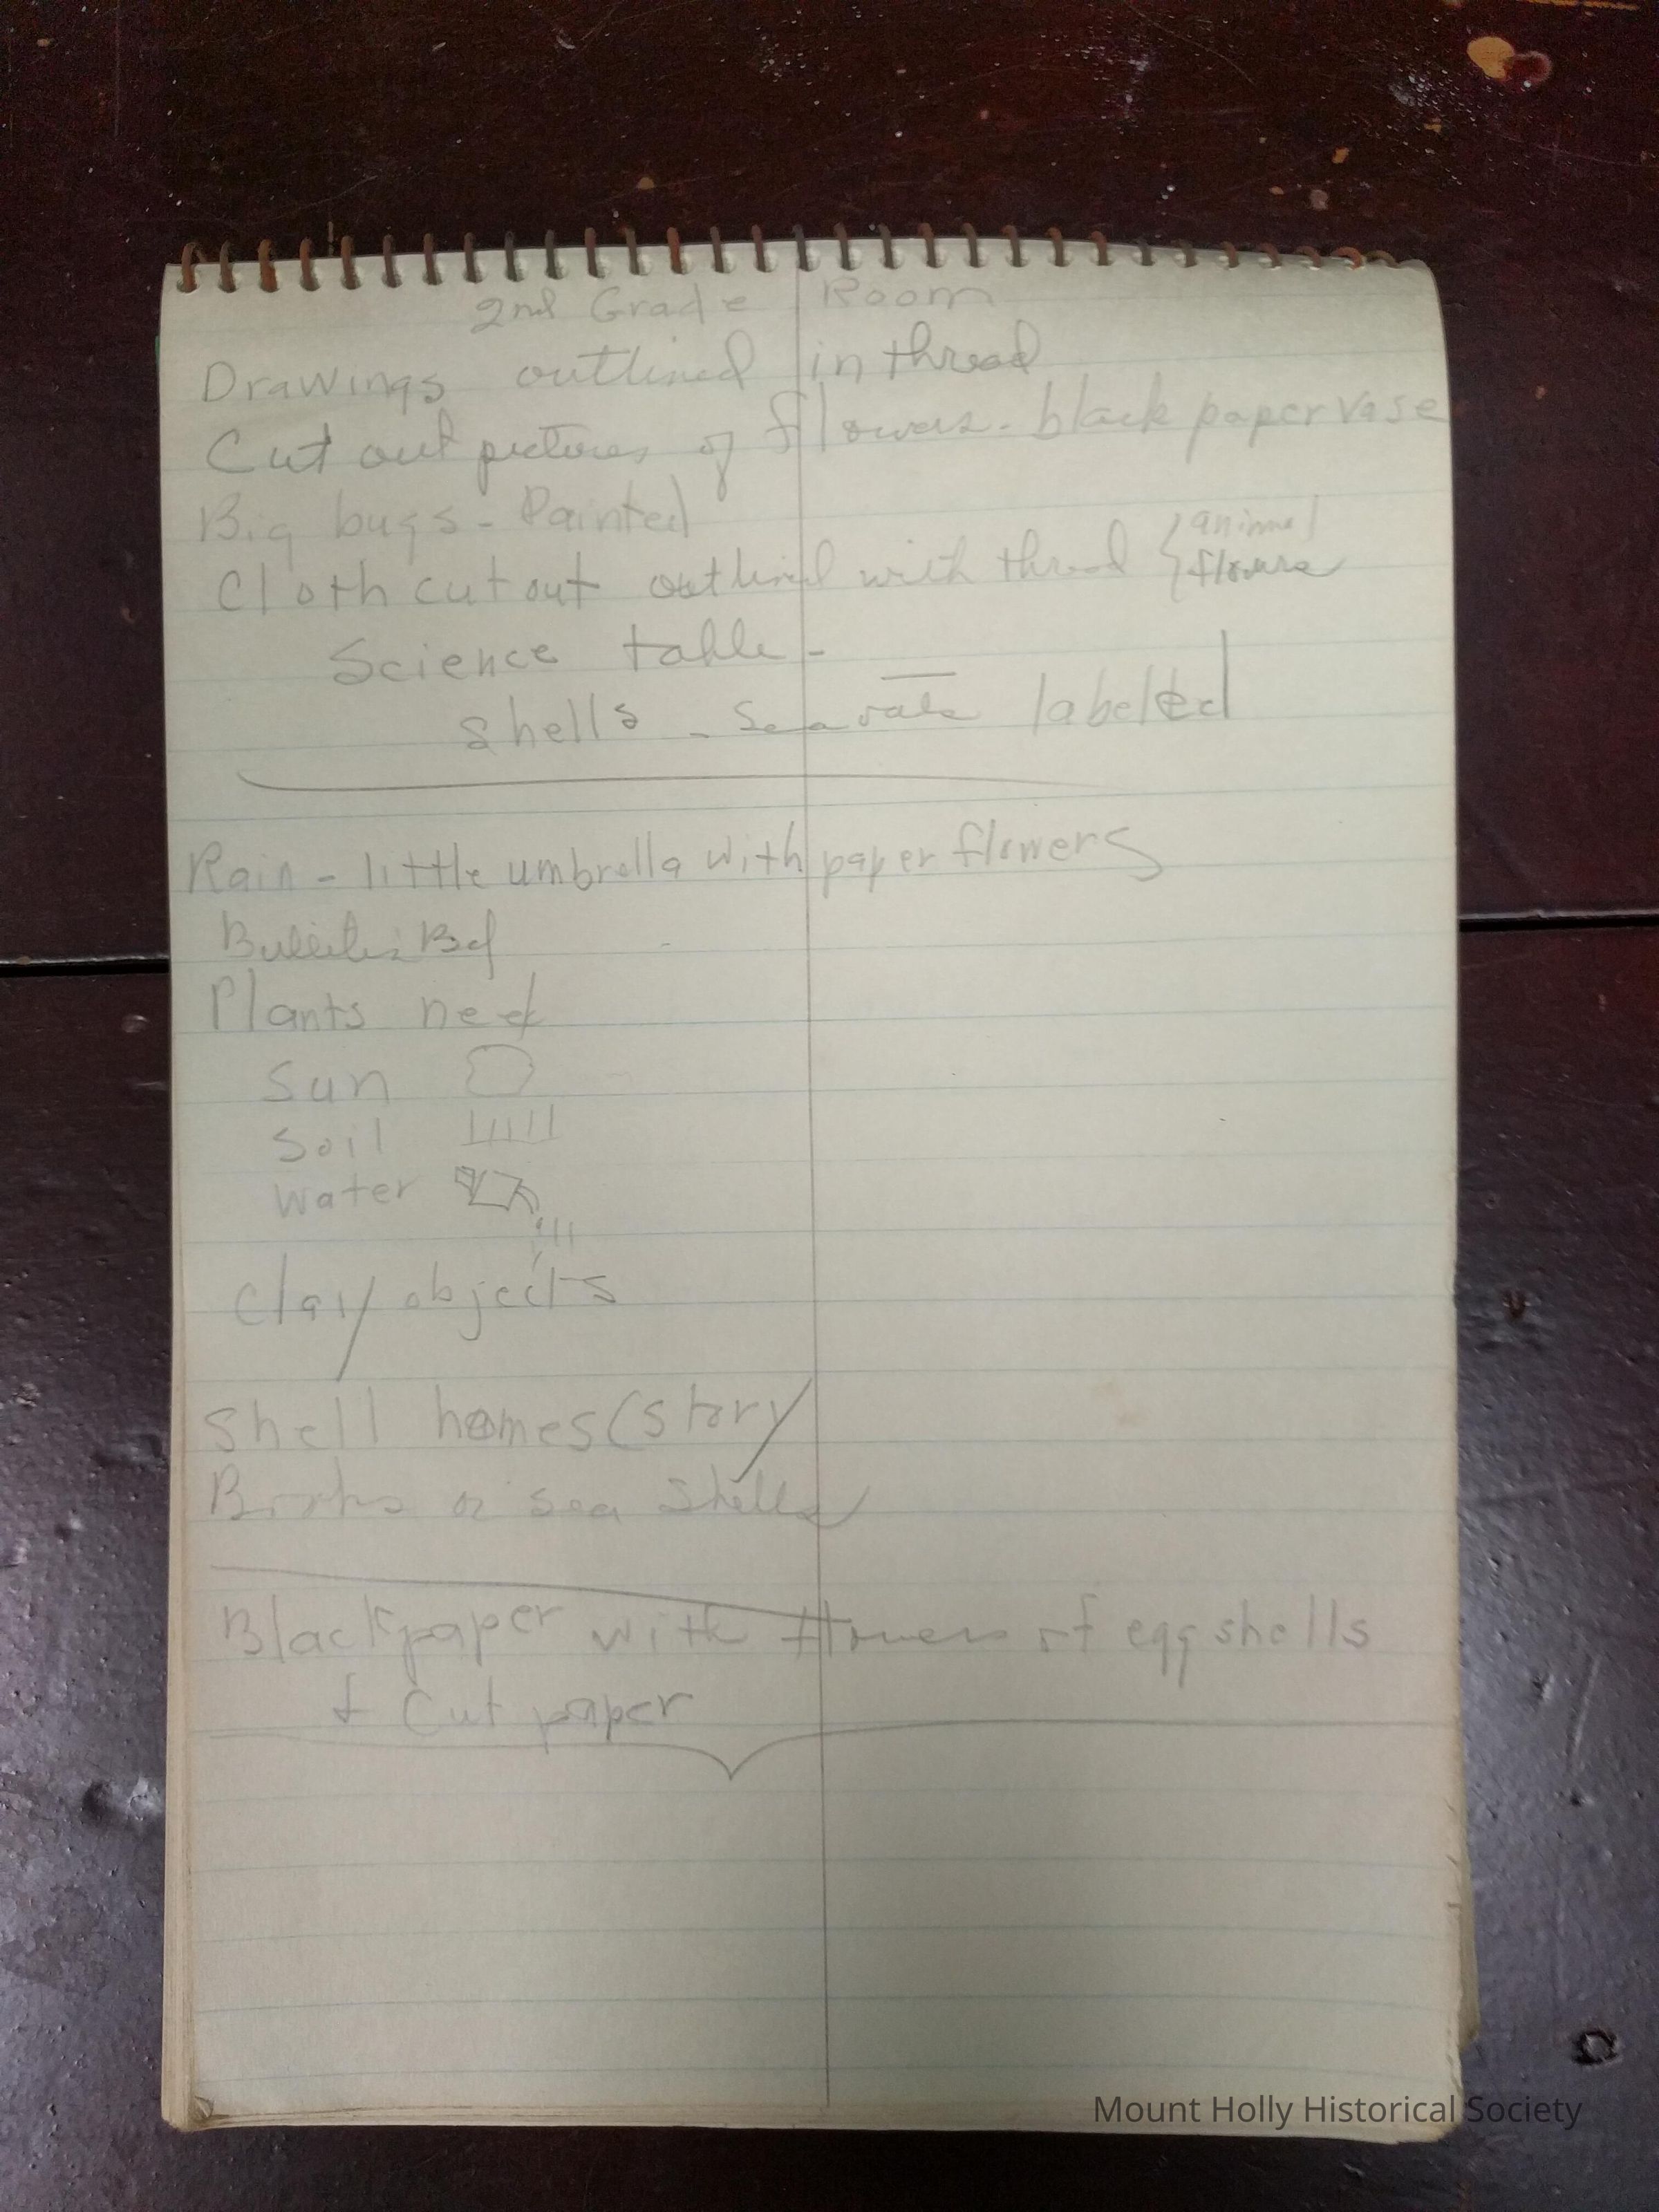 2nd Grade Room
Drawings outlined in thread
Cut out pictures of flowers - black paper vase
Big bugs - Painted
Cloth cut out outlined with thread { animal
flowers
Science table -
shells - labeled
Rain - little umbrella with paper flowers
Bulletin Bd
Plants need
Sun
Soil
Water
Clay objects
Shell homes (story
sea shells
Black paper with flowers of egg shells
& Cut paper
Mount Holly Historical Society